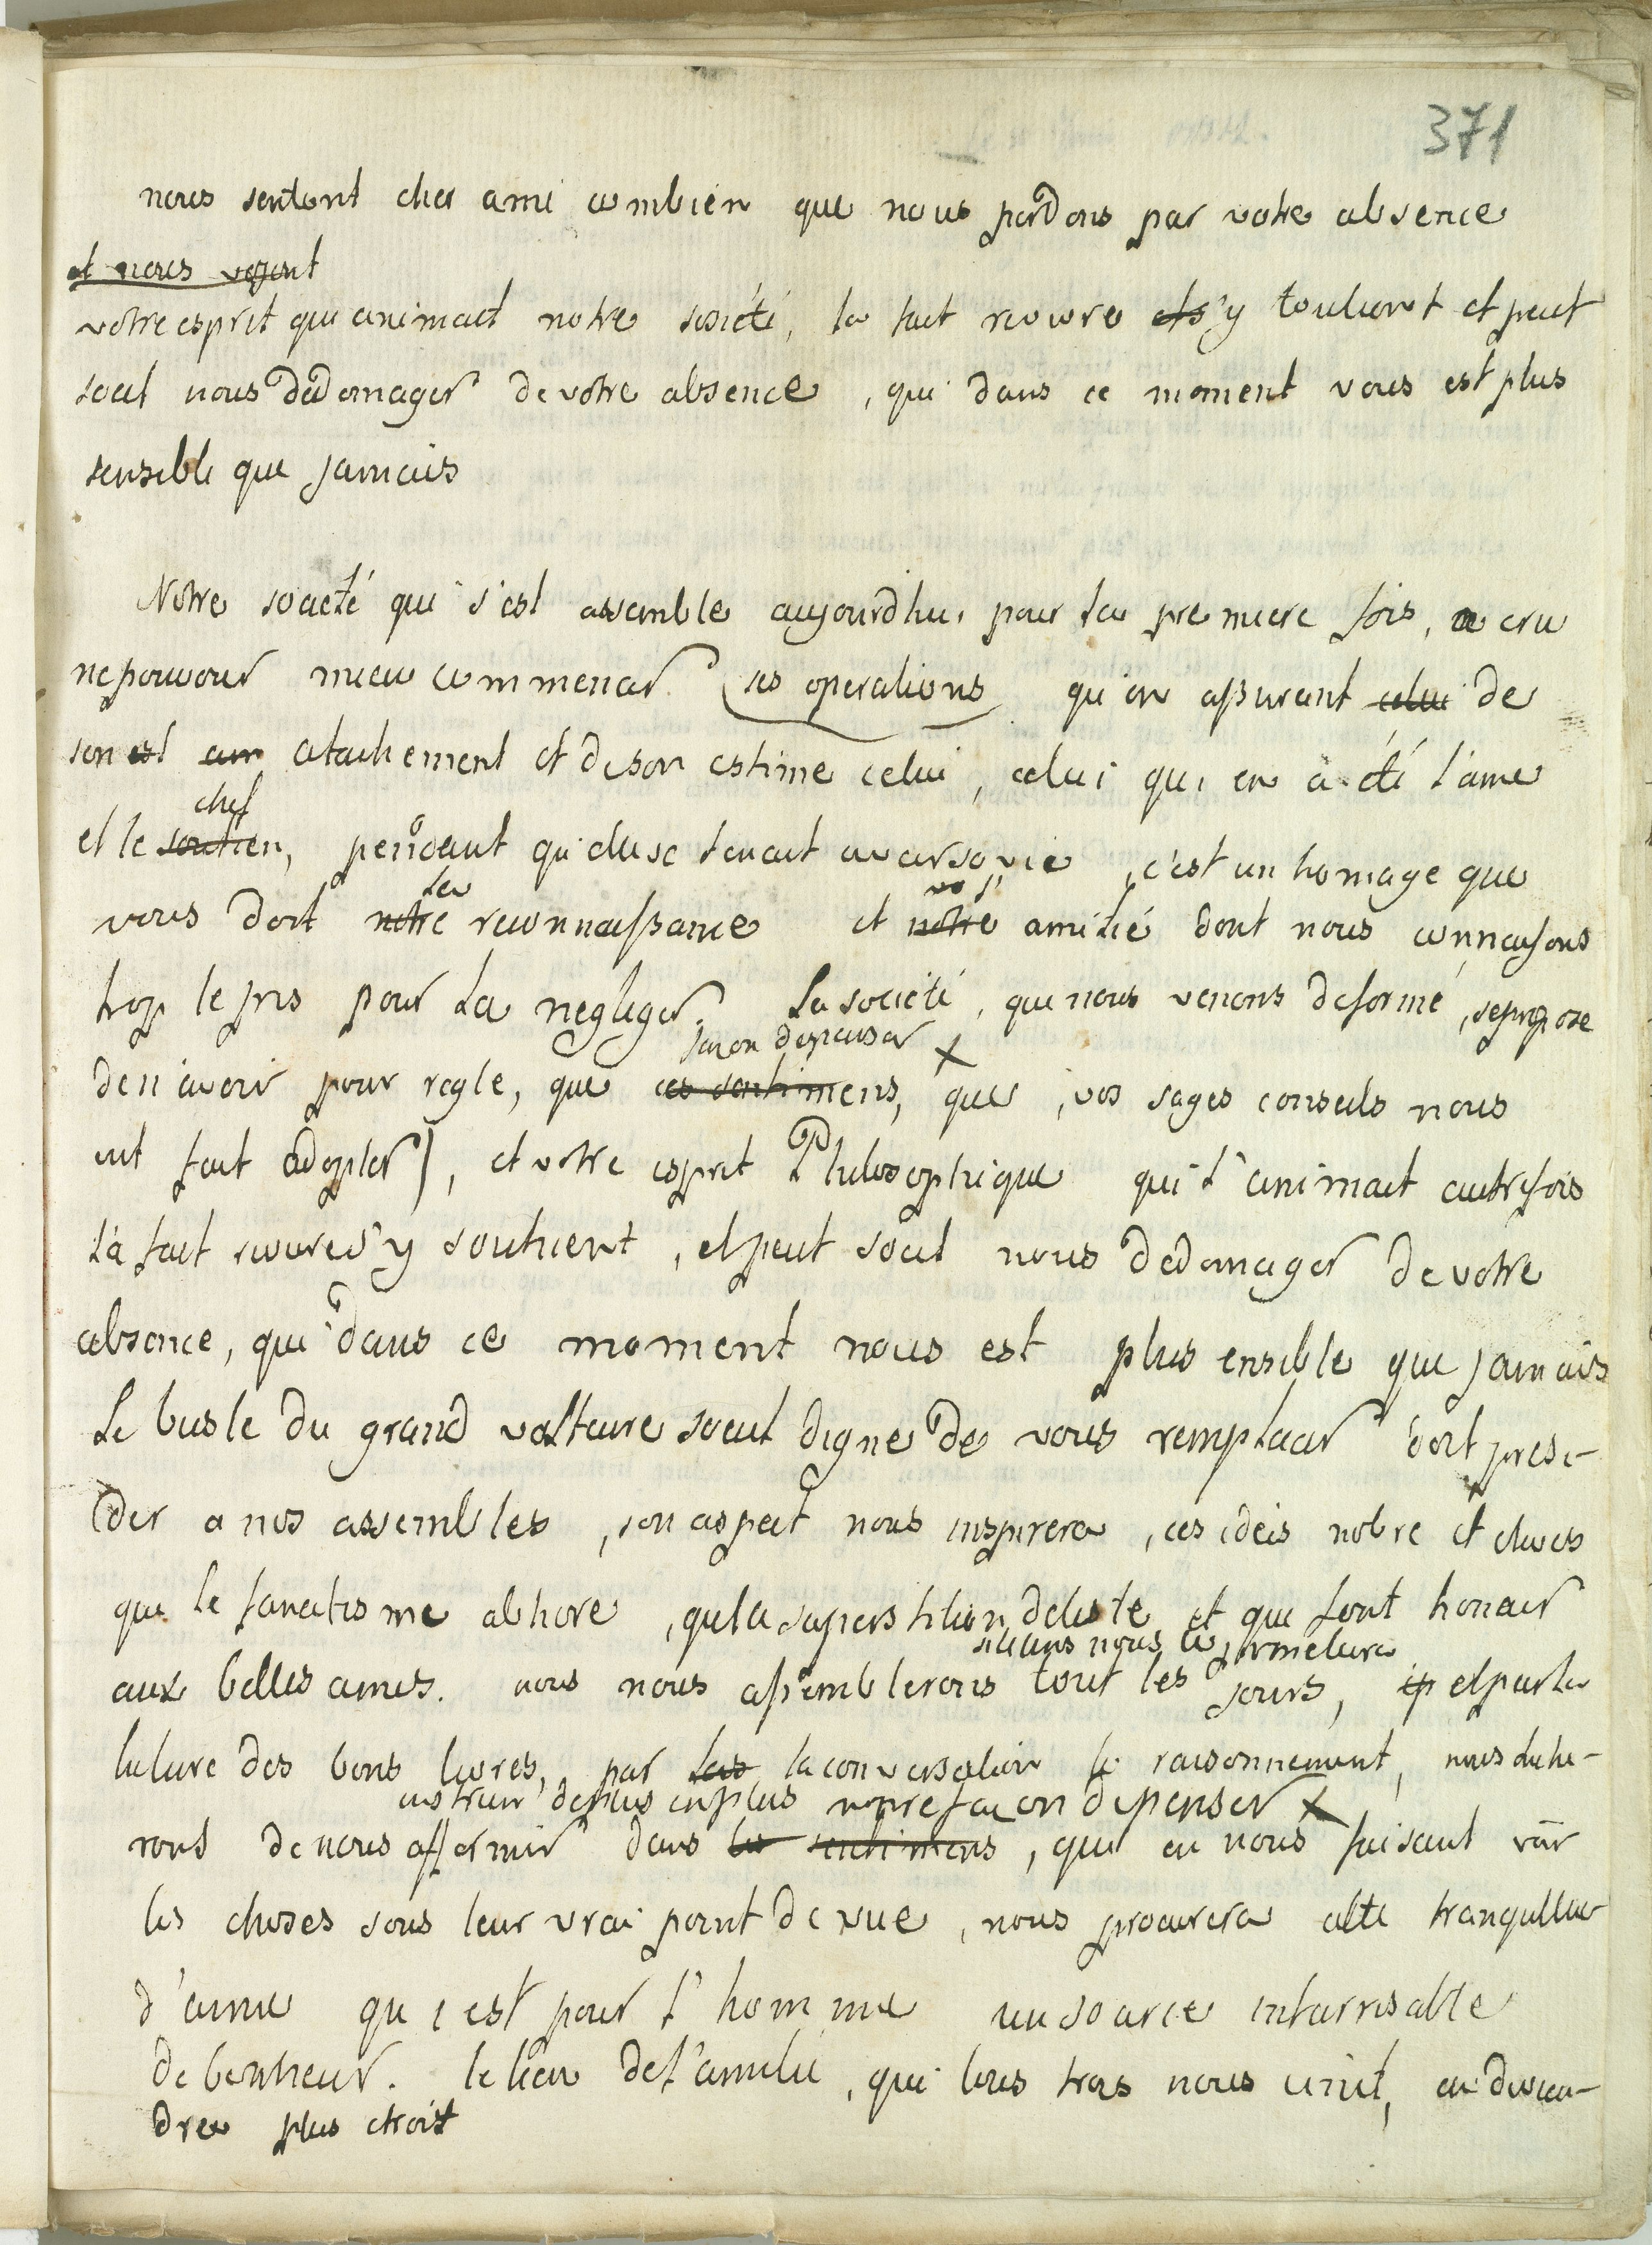 371
nous sentont cher ami combien que nous perdons par votre absence
et nous voyont
votre esprit qui animait notre societé, la fait revivre et s'y soutient et peut
seul nous dedomager de votre absence, qui dans ce moment vous est plus
sensible que jamais
Notre societé qui s'est assemble aujourdhui pour la premiere fois, a cru
ne pouvoir mieu commencer ses operations qu'en assurant celui de
son est atachement et de son estime celui, celui qui en a été l'ame
chef
et le soutien, pendant qu'elle se tenait a varsovie, c'est un homage que
la
vous doit notre reconnaissance et notre amitié dont nous connaisons
trop le pris pour la negliger. La societé, que nous venons de formé, se propose
façon de penser X
de n'avoir pour regle, que ces sentimens, que, vos sages conseils nous
ont fait adopter), et votre esprit Philosophique qui l'animait autrefois
l'a fait revivre s'y soutient, et peut seul nous dedomager de votre
absence, qui dans ce moment nous est plus ensible que jamais
Le buste du grand voltaire seul digne de vous remplacer doit presi-
der a nos assembles, son aspect nous inspirera, ces ideis noble et elves
que le fanatisme abhore, que la superstition deteste et que font honeur
nous le permetura
aux belles ames. nous nous assemblerons tout les jours, et par la
lecture des bons livres, par les la conversation le raisonnement, nous tache-
instruir de plus en plus notre façon de penser X
rons de nous affermir dans les sentimens, qui en nous faisant voir
les choses sous leur vrai point de vue, nous procurera cette tranquillite
d'ame qui est pour l'homme un source intarrisable
de bonheur. le lien de l'amitie, qui tous trois nous unit, en devien-
dra plus etroit